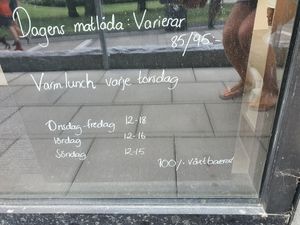 Dagens matlåda: Varierar
85/95:-
Varm lunch varje torsdag
Onsdag-fredag 12-18
Lördag 12-16
Söndag 12-15
100% växtbaserat